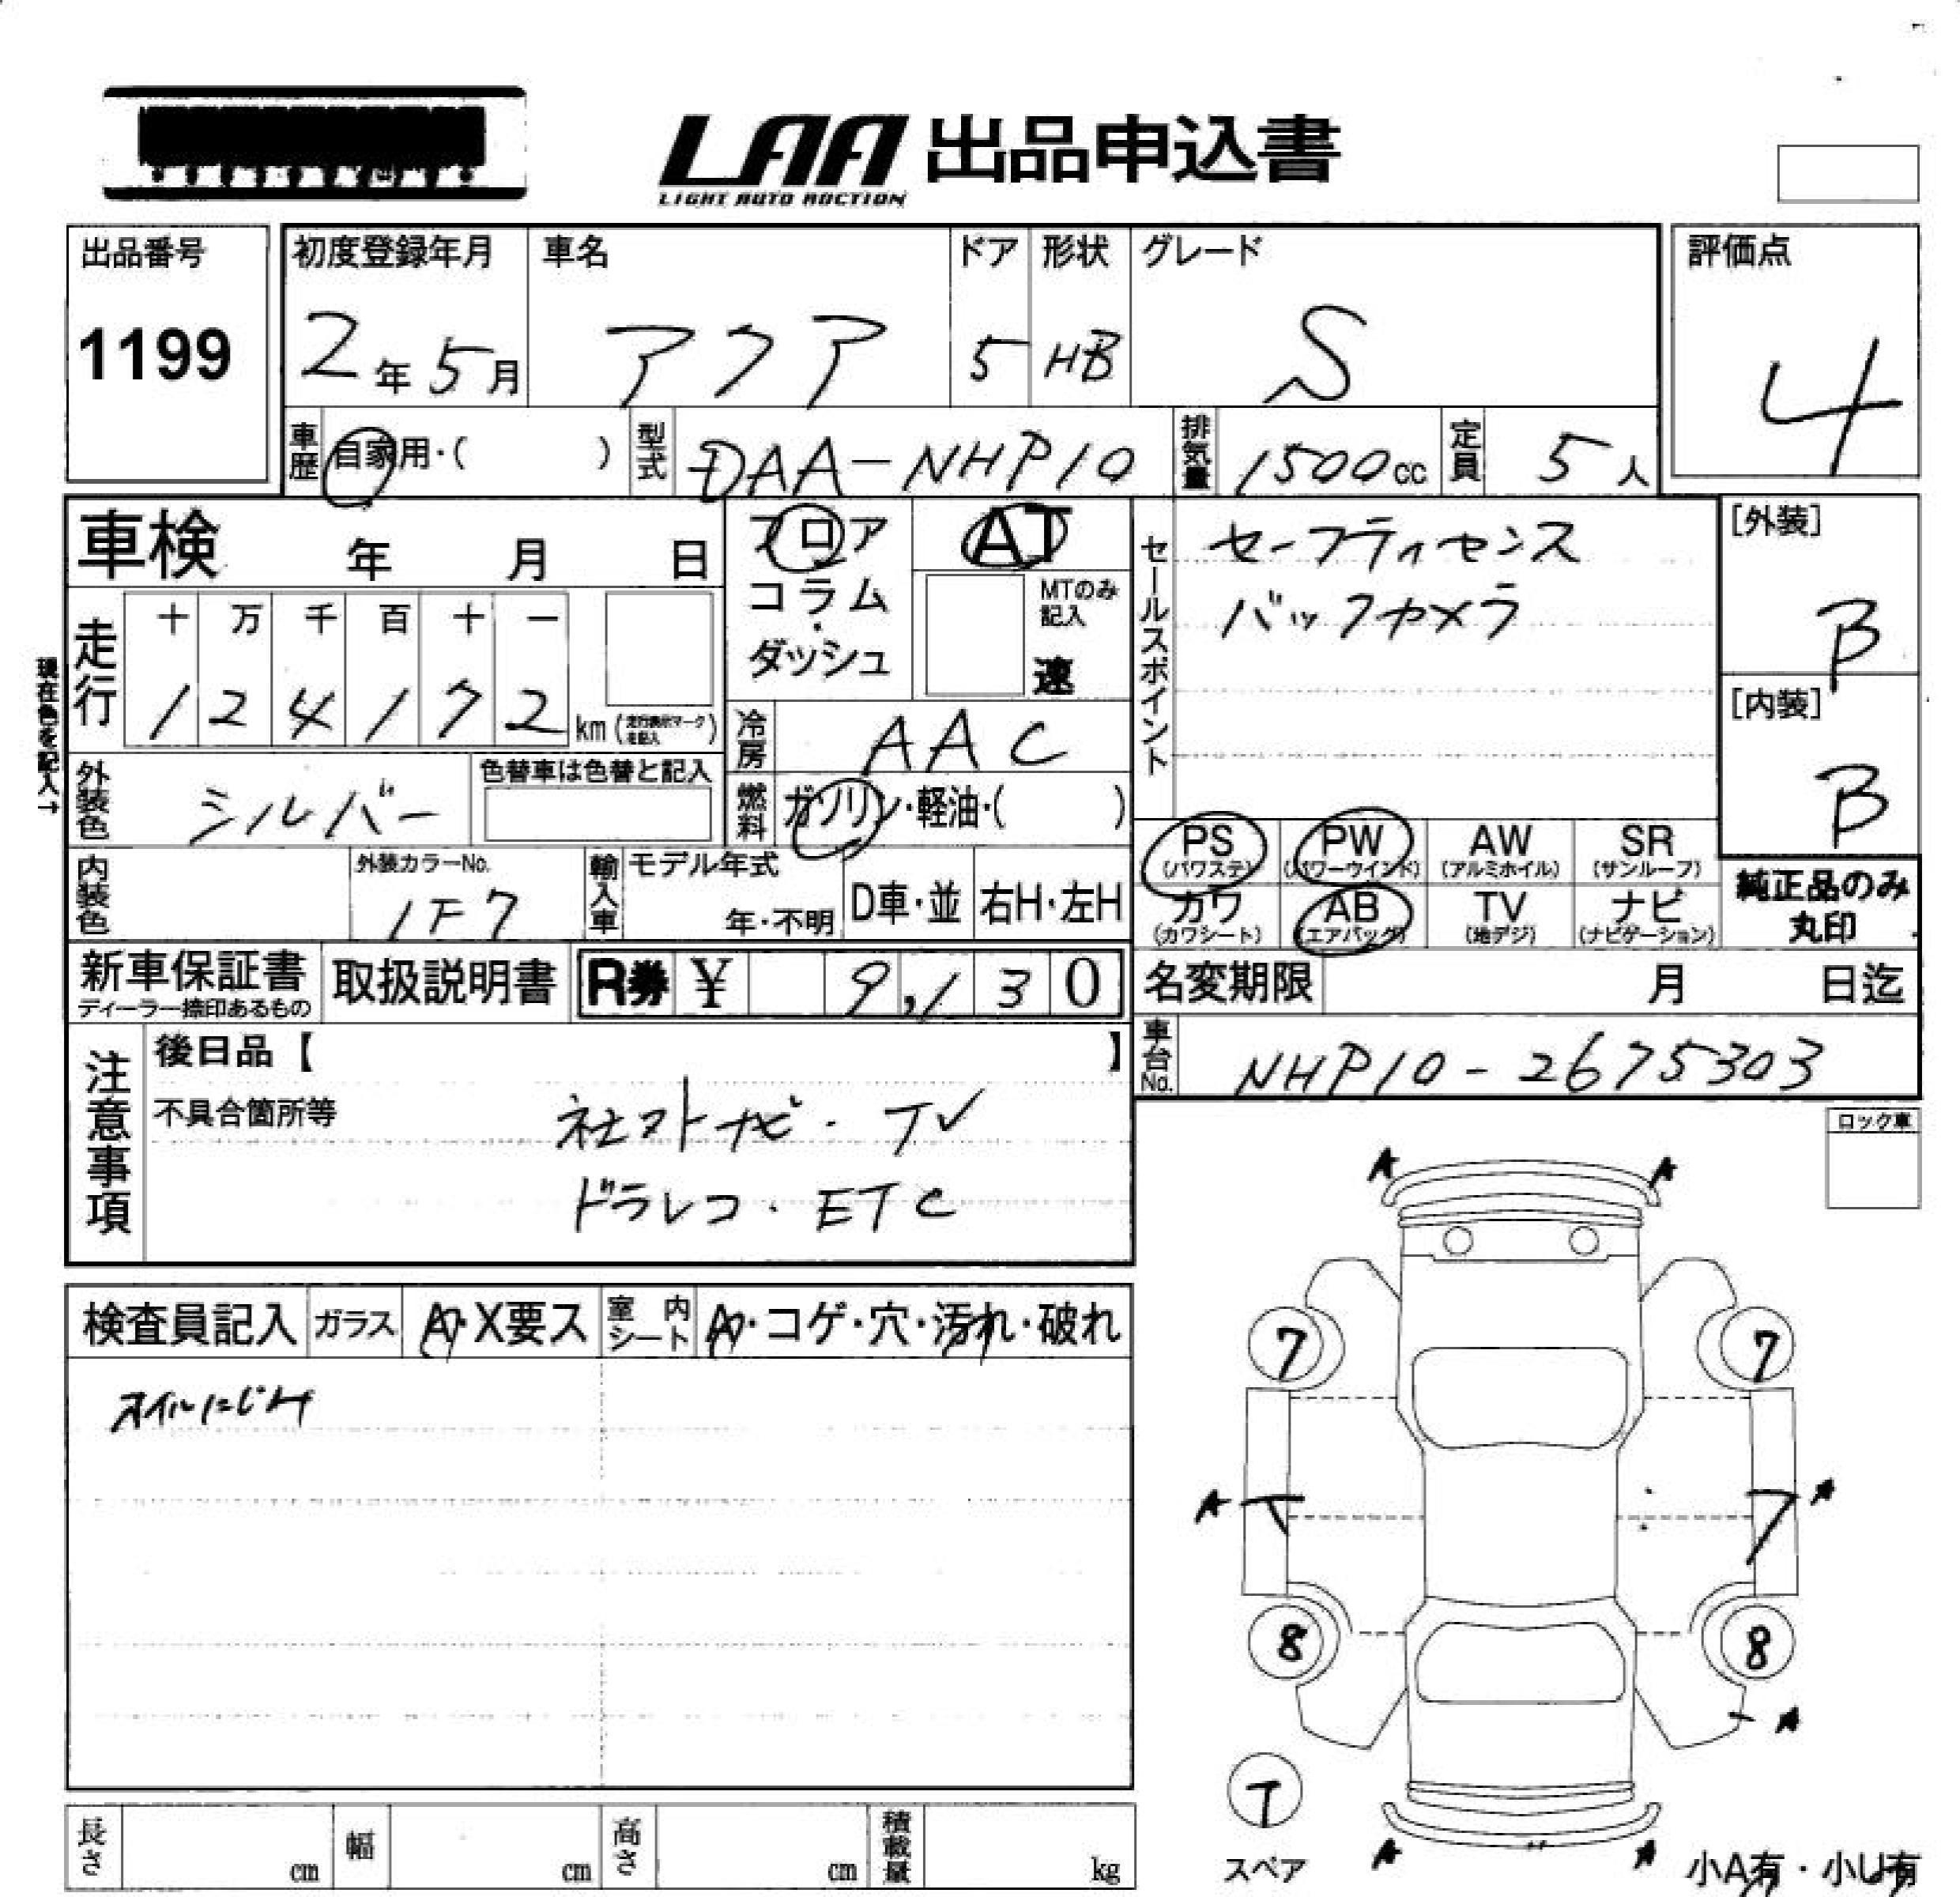 LAA 出品申込書
LIGHT AUTO AUCTION
出品番号
1199
初度登録年月
2年5月
車名
アクア
ドア
5
形状
HB
グレード
S
評価点
4
車歴
自家用・( )
型式
DAA-NHP10
排気量
1500cc
定員
5人
車検 年 月 日
フロア
コラム
・
ダッシュ
AT
MTのみ
記入
速
セールスポイント
セーフティセンス
バックカメラ
[外装]
B
[内装]
B
現在色を記入→
走行
十 万 千 百 十 一
1 2 4 1 7 2
km(走行表示マークを記入)
冷房
AAC
外装色
シルバー
色替車は色替と記入
燃料
ガソリン・軽油・( )
PS
(パワステ)
PW
(パワーウインド)
AW
(アルミホイル)
SR
(サンルーフ)
カワ
(カワシート)
AB
(エアバッグ)
TV
(地デジ)
ナビ
(ナビゲーション)
純正品のみ
丸印
内装色
外装カラーNo.
1F7
輸入車
モデル年式
年・不明
D車・並
右H・左H
新車保証書
ディーラー捺印あるもの
取扱説明書
R券 ¥ 9,130
名変期限 月 日迄
車台No.
NHP10-2675303
注意事項
後日品【 】
不具合箇所等
社外ナビ・TV
ドラレコ・ETC
ロック車
検査員記入
ガラス
A・X要ス
室内シート
A・コゲ・穴・汚れ・破れ
オイルにじみ
A A
7 7
A A
8 8
A
T
スペア
A A
小A有・小U有
長さ cm
幅 cm
高さ cm
積載量 kg